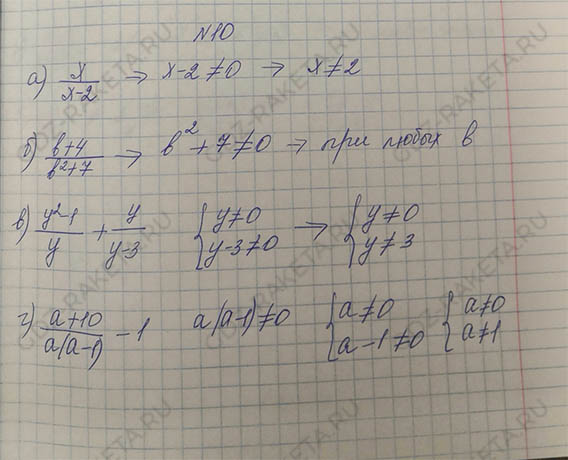 N10
а) x/(x-2) → x-2≠0 → x≠2
б) (b+4)/(b²+7) → b²+7≠0 → при любых b
в) (y²-1)/y + y/(y-3) {y≠0 y-3≠0 → {y≠0 y≠3
г) (a+10)/(a(a-1)) -1 a(a-1)≠0 {a≠0 a-1≠0 {a≠0 a≠1
GDZ-RAKETA.RU